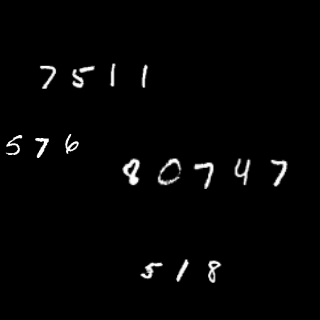 7511
576
80747
518